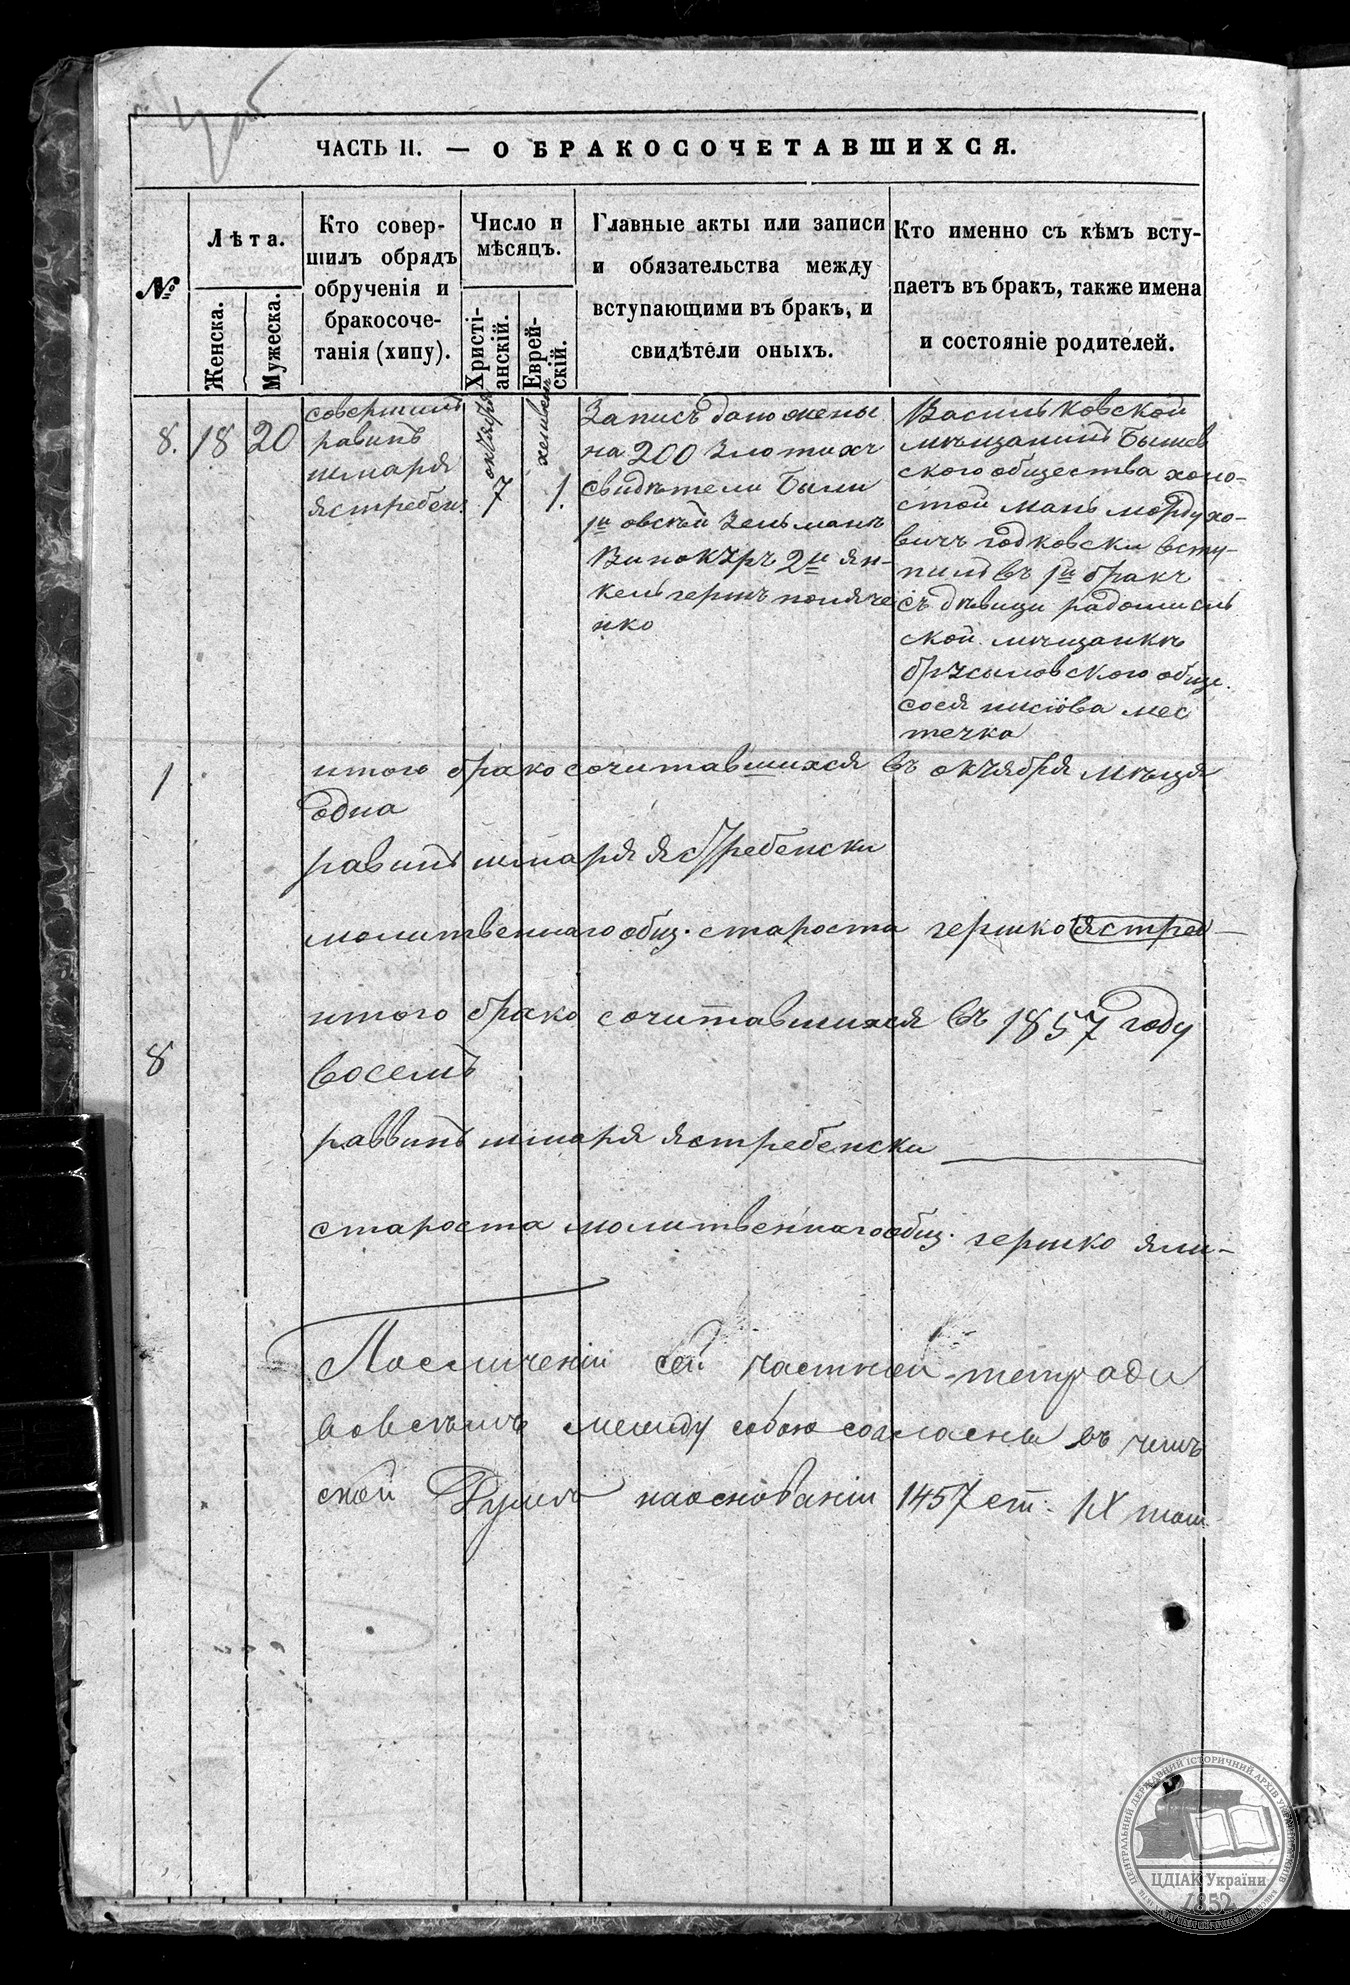 ЧАСТЬ II. — О БРАКОСОЧЕТАВШИХСЯ.
№
Лѣта.
Женска.
Мужеска.
Кто совер-
шилъ обрядъ
обрученія и
бракосоче-
танія (хипу).
Число и
мѣсяцъ.
Христі-
анскій.
Еврей-
скій.
Главные акты или записи
и обязательства между
вступающими въ бракъ, и
свидѣтели оныхъ.
Кто именно съ кѣмъ всту-
паетъ въ бракъ, также имена
и состояніе родителей.
8.
18
20
совершилъ
равинъ
шмаря
ястребен.
октября
7
хешвен
1.
Запись дано жены
на 200 Злотихъ
свидѣтели были
1й овсѣй Зельманъ
Винокуръ 2й ян-
кель герш поляче
нко
Васильковской
мѣщанинъ Бышев
ского общества холо-
стой мань мордухо-
вичъ годковски всту-
пилъ въ 1й бракъ
съ дѣвици радомисль
ской мѣщанкѣ
брусиловского обще.
сося
местечка
1
итого брако сочитавшихся въ октября мѣцэ
одна
равинъ шмаря ястребенски
молитвеннаго общ. староста гершко
8
итого брако сочитавшихся въ 1857 году
восемъ
раввинъ шмаря ястребенски
староста молитвеннаго общ. гершко ямп-
По сличеніи сей частной тетради
вовсемъ между собою согласны въ
ской Думѣ на основаніи 1457 ст. IX том.
ЦЕНТРАЛЬНИЙ ДЕРЖАВНИЙ ІСТОРИЧНИЙ АРХІВ УКРАЇНИ
ЦДІАК України
1852